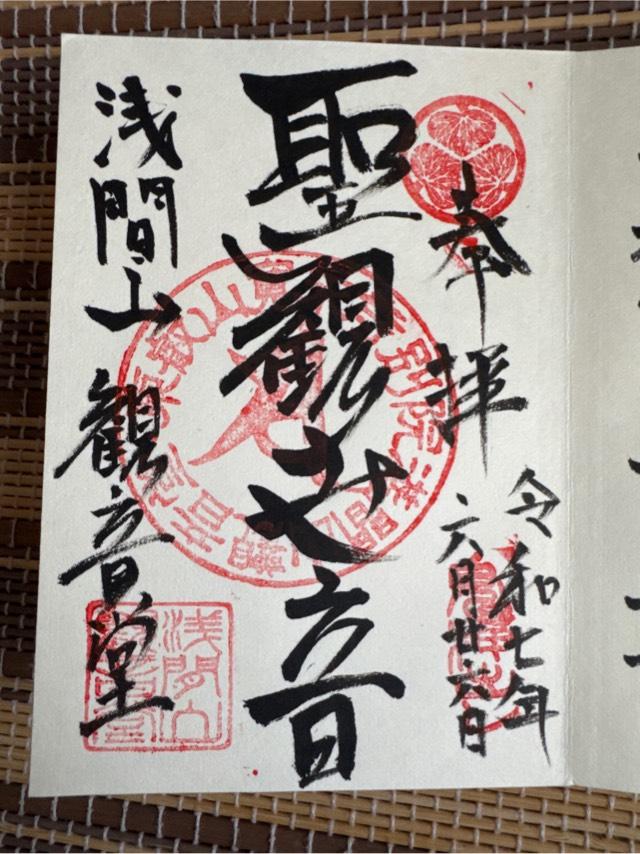 奉拝
令和七年
六月廿六日
聖観世音
浅間山観音堂
浅間山